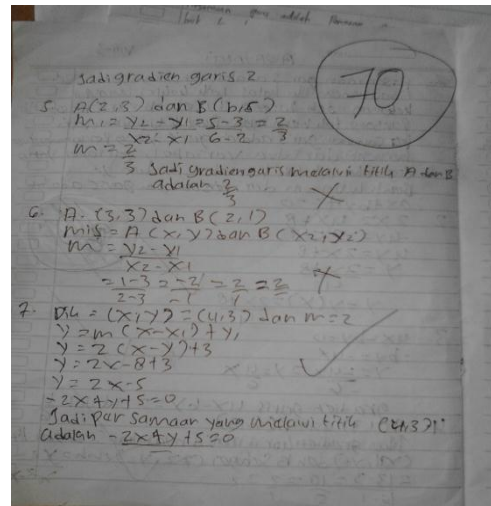 Jadi gradien garis 2
70
5. A(2,3) dan B(6,5)
m = y2 - y1 = 5 - 3 = 2
x2 - x1 6 - 2 3
m = 2
3 Jadi gradien garis melalui titik A dan B
adalah 2
3
6. A = (3,3) dan B(2,1)
mis = A(x,y) dan B(x2,y2)
m = y2 - y1
x2 - x1
= 1-3 = -2 = 2 = 2
2-3 -1 1
7. Dik = (x,y) = (4,3) dan m=2
y = m(x-x1)+y1
y = 2(x-y)+3
y = 2x-8+3
y = 2x-5
-2x+y+5=0
Jadi persamaan yang melalui titik (4,3)
adalah -2x+y+5=0